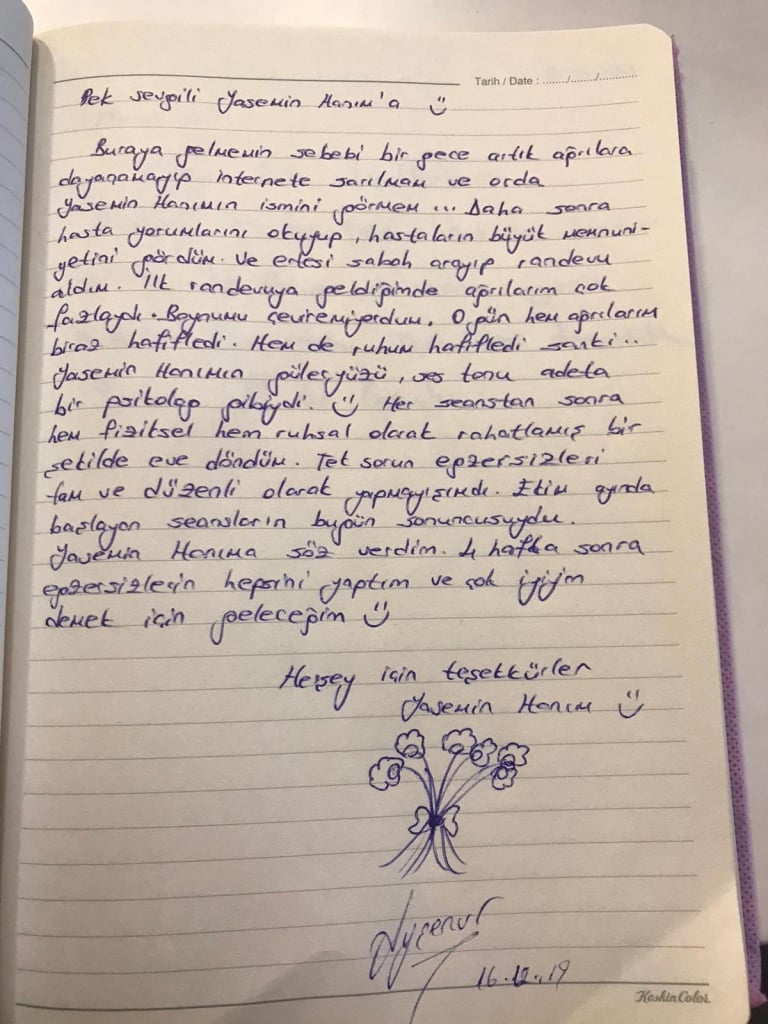 Tarih / Date : ......./......./...........
Pek sevgili Yasemin Hanım'a
Buraya gelmemin sebebi bir gece artık ağrılara
dayanamayıp internete sarılmam ve orda
Yasemin Hanımın ismini görmem ... Daha sonra
hasta yorumlarını okuyup, hastaların büyük memnuni-
yetini gördüm. Ve ertesi sabah arayıp randevu
aldım. İlk randevuya geldiğimde ağrılarım çok
fazlaydı. Boynumu çeviremiyordum. O gün hem ağrılarım
biraz hafifledi. Hem de ruhum hafifledi sanki..
Yasemin Hanımın güleryüzü, ses tonu adeta
bir psikolog gibiydi. Her seanstan sonra
hem fiziksel hem ruhsal olarak rahatlamış bir
şekilde eve döndüm. Tek sorun egzersizleri
tam ve düzenli olarak yapmayışımdı. Ekim ayında
başlayan seansların bugün sonuncusuydu.
Yasemin Hanıma söz verdim. 4 hafta sonra
egzersizlerin hepsini yaptım ve çok iyiyim
demek için geleceğim
Herşey için teşekkürler
Yasemin Hanım
Ayşenur
16.12.19
KeskinColor